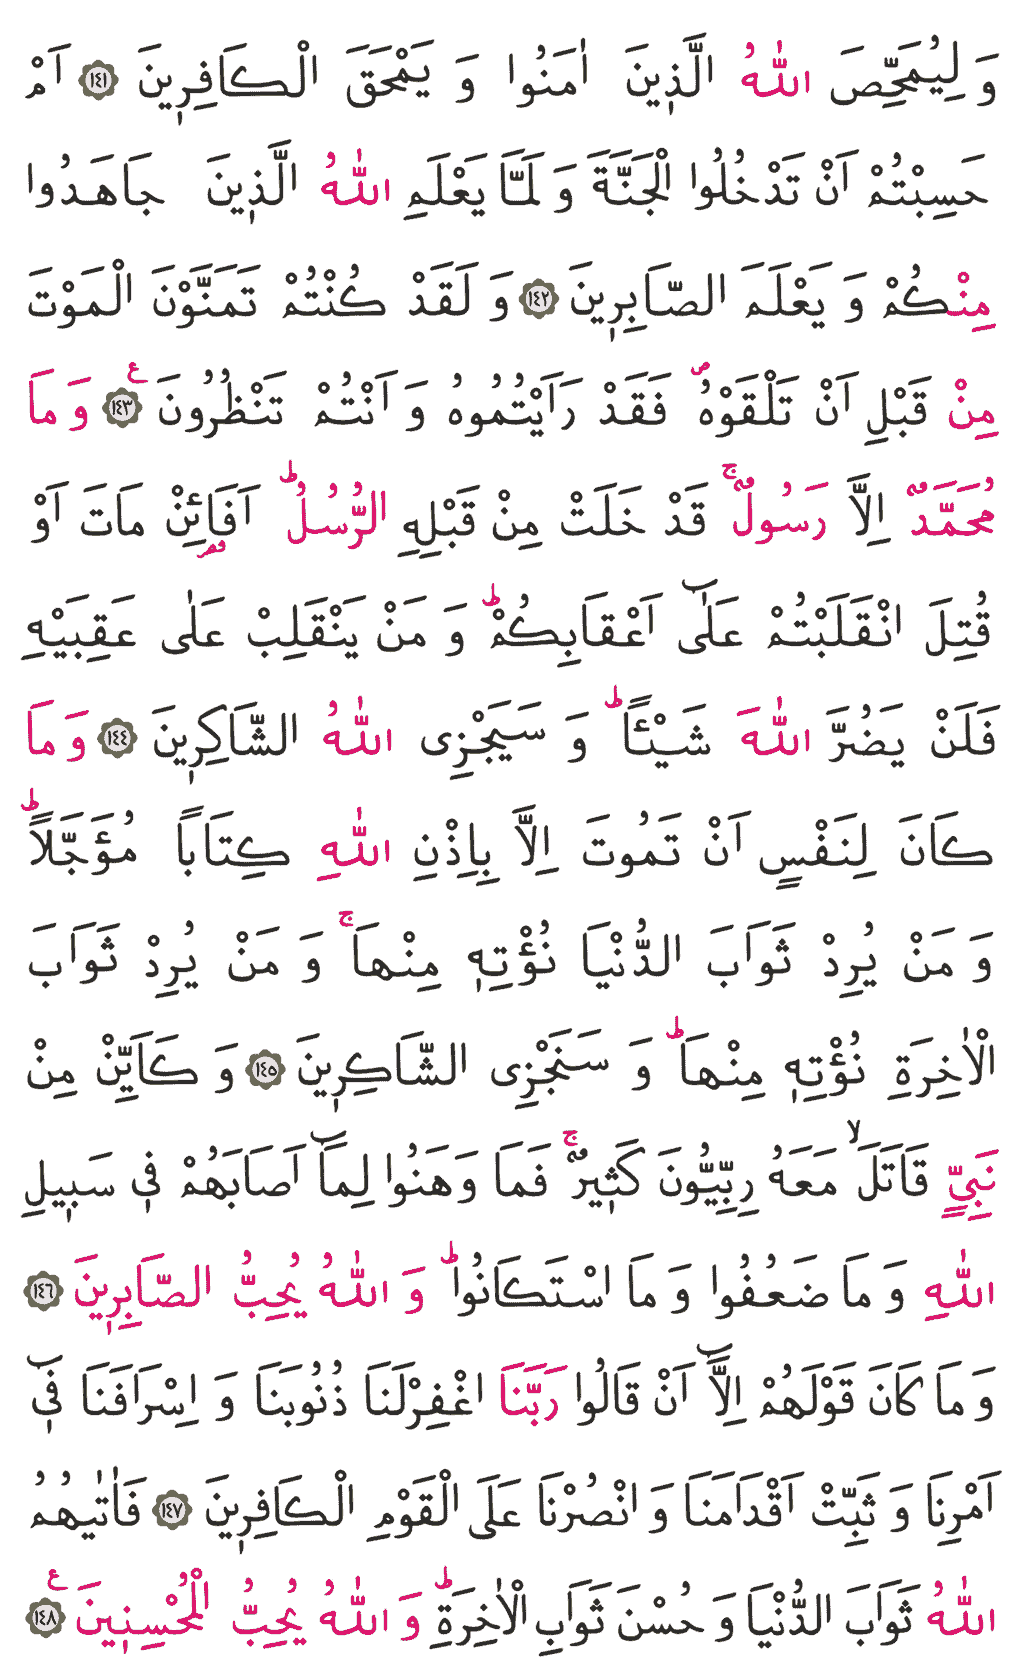 وَ لِيُمَحِّصَ اللّٰهُ الَّذٖينَ اٰمَنُوا وَ يَمْحَقَ الْكَافِرٖينَ ﴿١٤١﴾ اَمْ
حَسِبْتُمْ اَنْ تَدْخُلُوا الْجَنَّةَ وَ لَمَّا يَعْلَمِ اللّٰهُ الَّذٖينَ جَاهَدُوا
مِنْكُمْ وَ يَعْلَمَ الصَّابِرٖينَ ﴿١٤٢﴾ وَ لَقَدْ كُنْتُمْ تَمَنَّوْنَ الْمَوْتَ
مِنْ قَبْلِ اَنْ تَلْقَوْهُ ۖ فَقَدْ رَاَيْتُمُوهُ وَ اَنْتُمْ تَنْظُرُونَ ﴿١٤٣﴾ ع وَ مَا
مُحَمَّدٌ اِلَّا رَسُولٌ ۚ قَدْ خَلَتْ مِنْ قَبْلِهِ الرُّسُلُ ؕ اَفَا۬ئِنْ مَاتَ اَوْ
قُتِلَ انْقَلَبْتُمْ عَلٰٓى اَعْقَابِكُمْ ؕ وَ مَنْ يَنْقَلِبْ عَلٰى عَقِبَيْهِ
فَلَنْ يَضُرَّ اللّٰهَ شَيْـًٔا ؕ وَ سَيَجْزِى اللّٰهُ الشَّاكِرٖينَ ﴿١٤٤﴾ وَ مَا
كَانَ لِنَفْسٍ اَنْ تَمُوتَ اِلَّا بِاِذْنِ اللّٰهِ كِتَابًا مُؤَجَّلًا ؕ
وَ مَنْ يُرِدْ ثَوَابَ الدُّنْيَا نُؤْتِهٖ مِنْهَا ۚ وَ مَنْ يُرِدْ ثَوَابَ
الْاٰخِرَةِ نُؤْتِهٖ مِنْهَا ؕ وَ سَنَجْزِى الشَّاكِرٖينَ ﴿١٤٥﴾ وَ كَاَيِّنْ مِنْ
نَبِيٍّ قَاتَلَ ۙ مَعَهُ رِبِّيُّونَ كَثٖيرٌ ۚ فَمَا وَهَنُوا لِمَٓا اَصَابَهُمْ فٖى سَبٖيلِ
اللّٰهِ وَ مَا ضَعُفُوا وَ مَا اسْتَكَانُوا ؕ وَ اللّٰهُ يُحِبُّ الصَّابِرٖينَ ﴿١٤٦﴾
وَ مَا كَانَ قَوْلَهُمْ اِلَّٓا اَنْ قَالُوا رَبَّنَا اغْفِرْلَنَا ذُنُوبَنَا وَ اِسْرَافَنَا فٖٓى
اَمْرِنَا وَ ثَبِّتْ اَقْدَامَنَا وَ انْصُرْنَا عَلَى الْقَوْمِ الْكَافِرٖينَ ﴿١٤٧﴾ فَاٰتٰيهُمُ
اللّٰهُ ثَوَابَ الدُّنْيَا وَ حُسْنَ ثَوَابِ الْاٰخِرَةِ ؕ وَ اللّٰهُ يُحِبُّ الْمُحْسِنٖينَ ﴿١٤٨﴾ ع